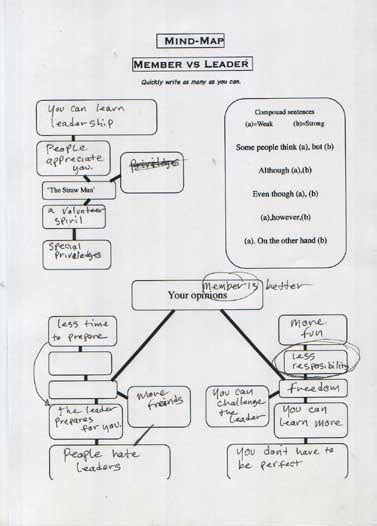 MIND-MAP
MEMBER VS LEADER
Quickly write as many as you can.
You can learn
leadership
People
appreciate
you.
Priviledges
'The Straw Man'
a volunteer
spiril
Special
Priveledges
Compound sentences
(a)=Weak (b)=Strong
Some people think (a), but (b)
Although (a),(b)
Even though (a), (b)
(a),however,(b)
(a). On the other hand (b)
Member is better
Your opinions
less time
to prepare
the leader
prepares
for you.
More
friends
People hate
leaders
more
fun
less
resposibility
freedom
You can
challenge
the
leader
You can
learn more
You don't have to
be perfect